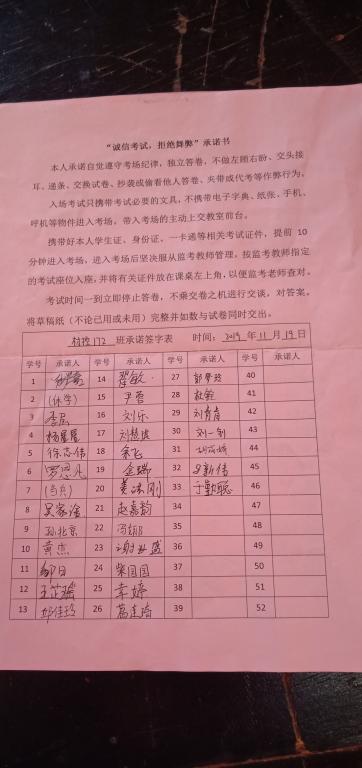 “诚信考试，拒绝舞弊”承诺书
本人承诺自觉遵守考场纪律，独立答卷，不做左顾右盼、交头接
耳、递条、交换试卷、抄袭或偷看他人答卷、夹带或代考等作弊行为。
入场考试只携带考试必要的文具，不携带电子字典、纸张、手机、
呼机等物件进入考场，带入考场的主动上交教室前台。
携带好本人学生证、身份证、一卡通等相关考试证件，提前 10
分钟进入考场，进入考场后坚决服从监考教师管理，按监考教师指定
的考试座位入座，并将有关证件放在课桌左上角，以便监考老师查对。
考试时间一到立即停止答卷，不乘交卷之机进行交谈，对答案。
将草稿纸（不论已用或未用）完整并如数与试卷同时交出。
172 班承诺签字表 时间：2019 年 11 月 19 日
学号 承诺人 学号 承诺人 学号 承诺人 学号 承诺人
1 14 27 40
2 (休学) 15 尹蓉 28 41
3 李磊 16 刘乐 29 42
4 杨星星 17 30 刘一钊 43
5 徐志伟 18 余飞 31 44
6 罗思凡 19 32 45
7 (当兵) 20 33 46
8 21 赵嘉韵 34 47
9 孙北京 22 35 48
10 黄杰 23 36 49
11 邹日 24 柴国国 37 50
12 25 李婷 38 51
13 邱佳玲 26 39 52